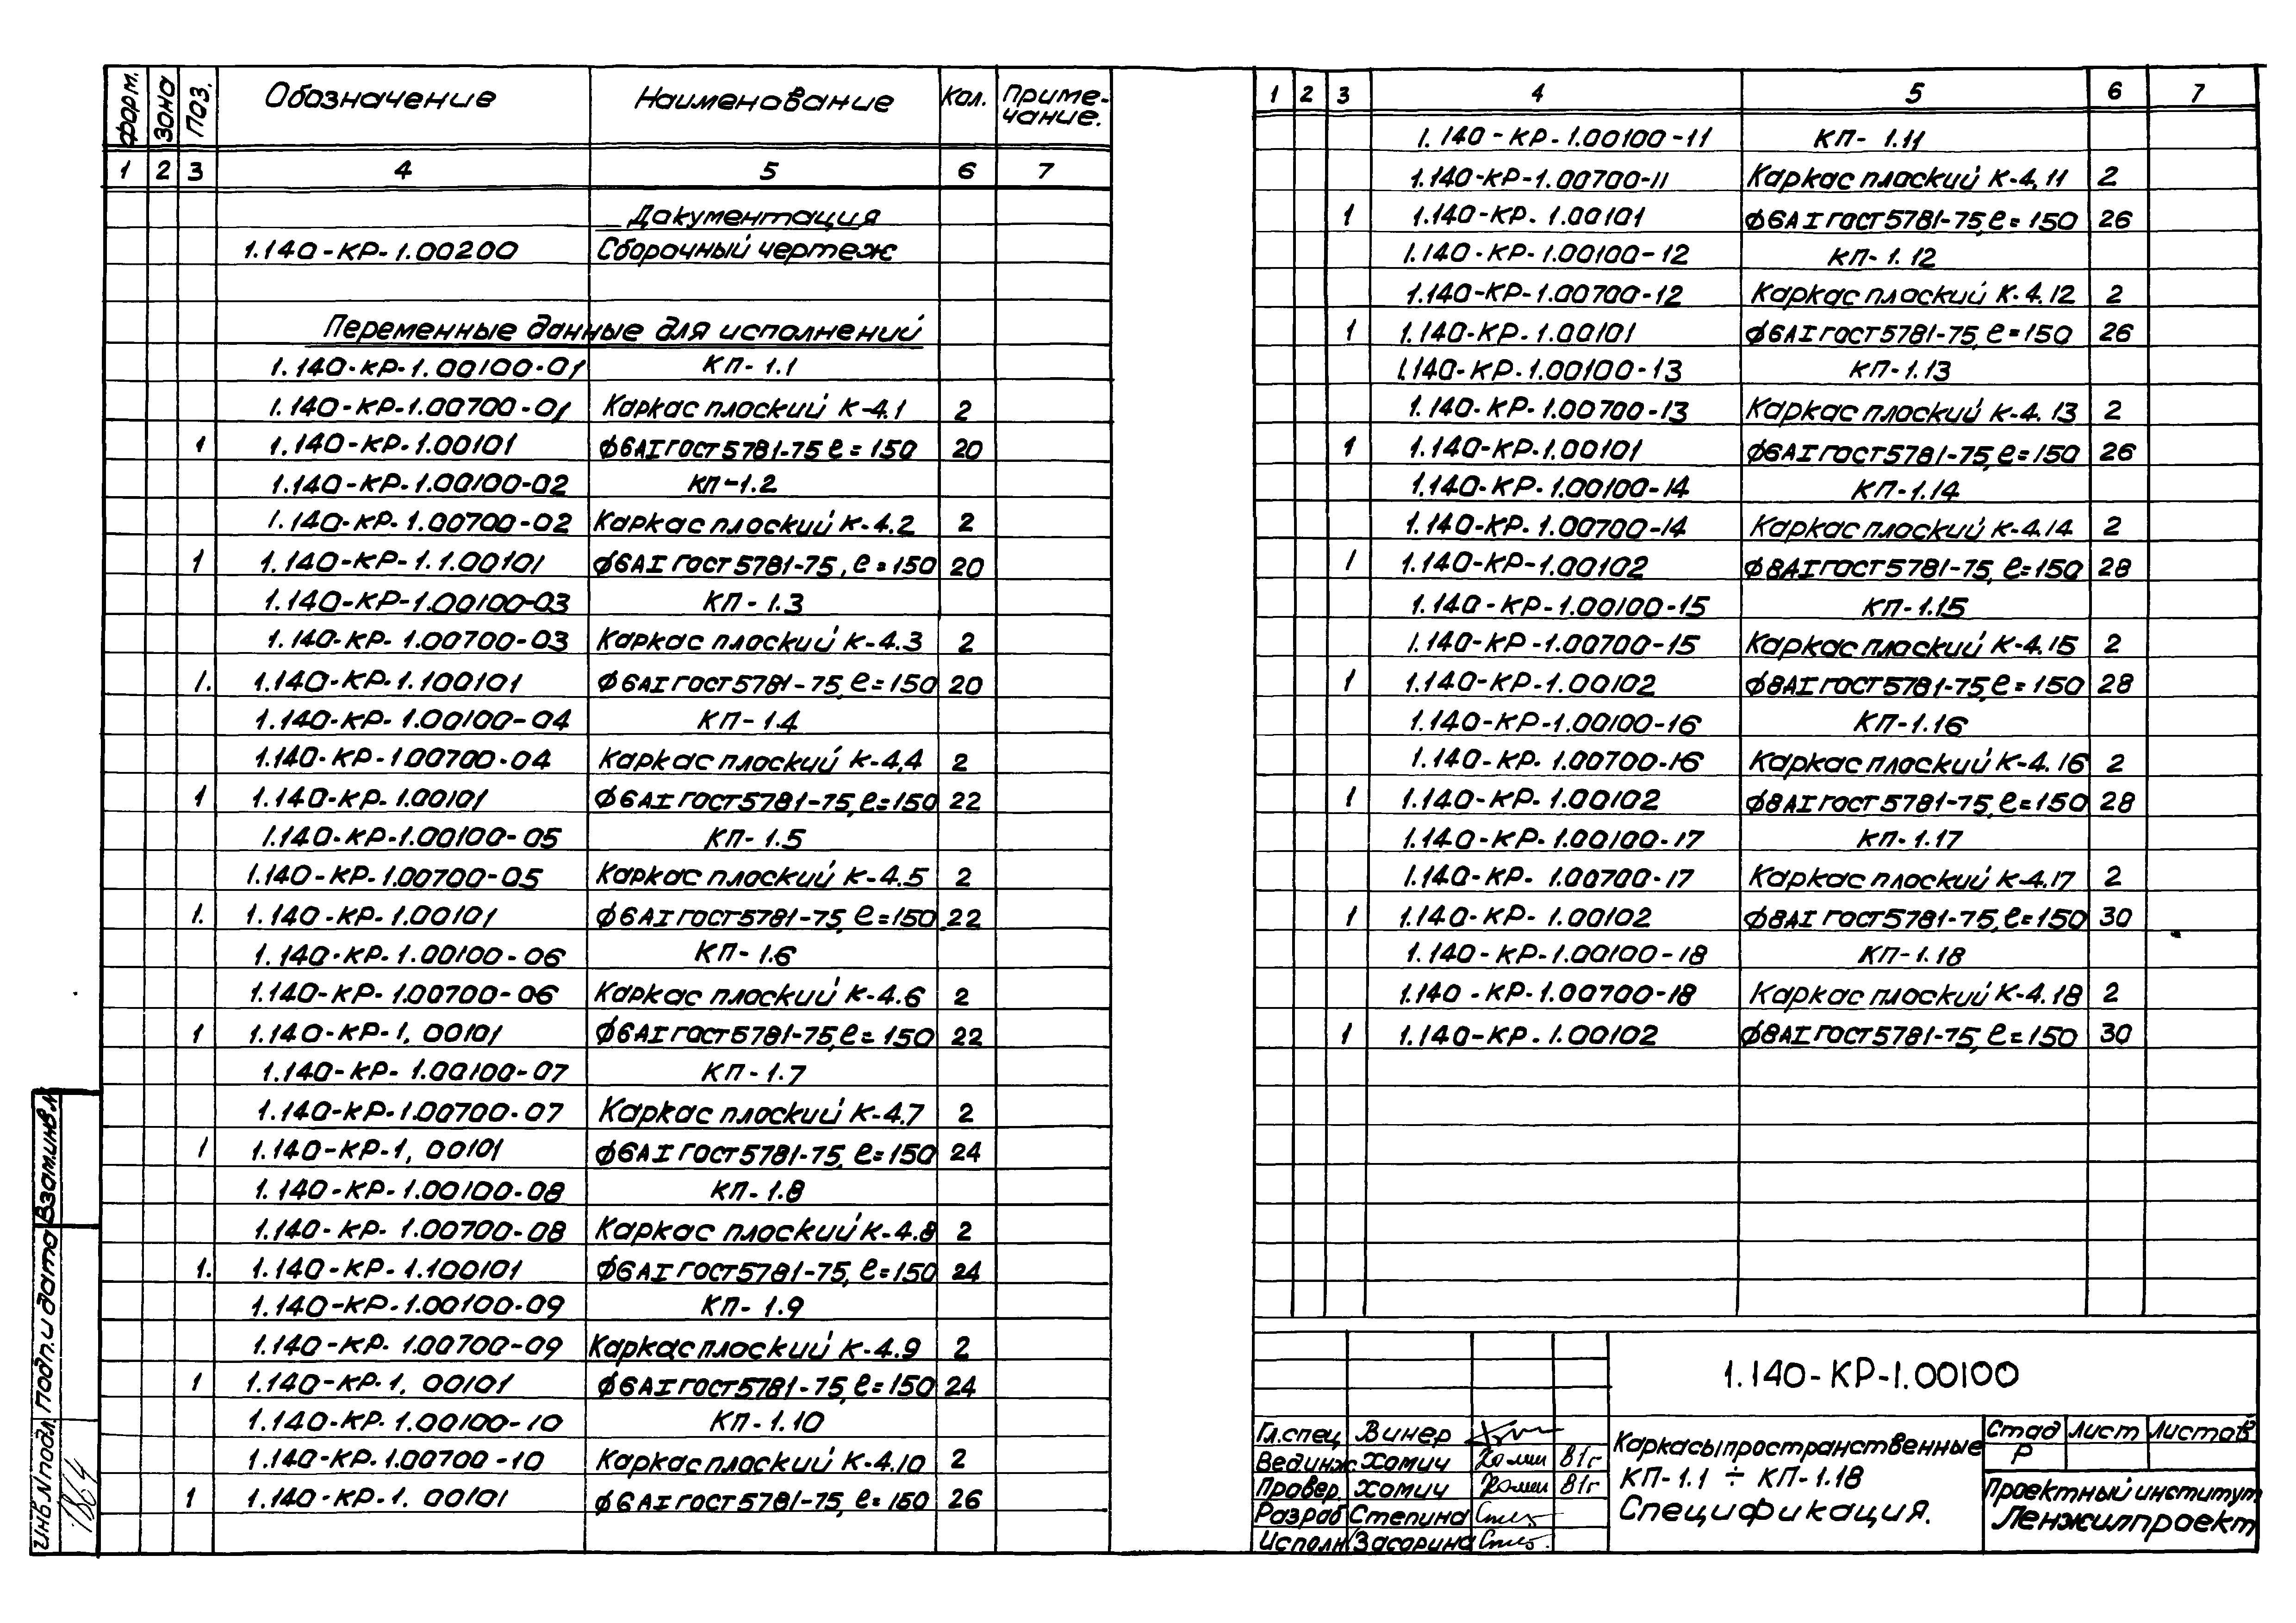 Форм. Зона Поз. Обозначение Наименование Кол. Приме-
чание.
1 2 3 4 5 6 7
Документация
1.140-КР-1.00200 Сборочный чертеж
Переменные данные для исполнений
1.140-КР-1.00100-01 КП-1.1
1.140-КР-1.00700-01 Каркас плоский К-4.1 2
1 1.140-КР-1.00101 ф6АI ГОСТ 5781-75 ℓ=150 20
1.140-КР-1.00100-02 КП-1.2
1.140-КР-1.00700-02 Каркас плоский К-4.2 2
1 1.140-КР-1.1.00101 ф6АI ГОСТ 5781-75, ℓ=150 20
1.140-КР-1.00100-03 КП-1.3
1.140-КР-1.00700-03 Каркас плоский К-4.3 2
1. 1.140-КР-1.100101 ф6АI ГОСТ 5781-75, ℓ=150 20
1.140-КР-1.00100-04 КП-1.4
1.140-КР-1.00700-04 Каркас плоский К-4,4 2
1 1.140-КР-1.00101 ф6АI ГОСТ 5781-75, ℓ=150 22
1.140-КР-1.00100-05 КП-1.5
1.140-КР-1.00700-05 Каркас плоский К-4.5 2
1. 1.140-КР-1.00101 ф6АI ГОСТ 5781-75, ℓ=150 22
1.140-КР-1.00100-06 КП-1.6
1.140-КР-1.00700-06 Каркас плоский К-4.6 2
1 1.140-КР-1, 00101 ф6АI ГОСТ 5781-75, ℓ=150 22
1.140-КР-1.00100-07 КП-1.7
1.140-КР-1.00700-07 Каркас плоский К-4.7 2
1 1.140-КР-1, 00101 ф6АI ГОСТ 5781-75, ℓ=150 24
1.140-КР-1.00100-08 КП-1.8
1.140-КР-1.00700-08 Каркас плоский К-4.8 2
1. 1.140-КР-1.100101 ф6АI ГОСТ 5781-75, ℓ=150 24
1.140-КР-1.00100-09 КП-1.9
1.140-КР-1.00700-09 Каркас плоский К-4.9 2
1 1.140-КР-1, 00101 ф6АI ГОСТ 5781-75, ℓ=150 24
1.140-КР-1.00100-10 КП-1.10
1.140-КР-1.00700-10 Каркас плоский К-4.10 2
1 1.140-КР-1. 00101 ф6АI ГОСТ 5781-75, ℓ=150 26
1 2 3 4 5 6 7
1.140-КР-1.00100-11 КП-1.11
1.140-КР-1.00700-11 Каркас плоский К-4.11 2
1 1.140-КР-1.00101 ф6АI ГОСТ 5781-75, ℓ=150 26
1.140-КР-1.00100-12 КП-1.12
1.140-КР-1.00700-12 Каркас плоский К-4.12 2
1 1.140-КР-1.00101 ф6АI ГОСТ 5781-75, ℓ=150 26
1.140-КР-1.00100-13 КП-1.13
1.140-КР-1.00700-13 Каркас плоский К-4.13 2
1 1.140-КР-1.00101 ф6АI ГОСТ 5781-75, ℓ=150 26
1.140-КР-1.00100-14 КП-1.14
1.140-КР-1.00700-14 Каркас плоский К-4.14 2
1 1.140-КР-1.00102 ф8АI ГОСТ 5781-75, ℓ=150 28
1.140-КР-1.00100-15 КП-1.15
1.140-КР-1.00700-15 Каркас плоский К-4.15 2
1 1.140-КР-1.00102 ф8АI ГОСТ 5781-75, ℓ=150 28
1.140-КР-1.00100-16 КП-1.16
1.140-КР-1.00700-16 Каркас плоский К-4.16 2
1 1.140-КР-1.00102 ф8АI ГОСТ 5781-75, ℓ=150 28
1.140-КР-1.00100-17 КП-1.17
1.140-КР-1.00700-17 Каркас плоский К-4.17 2
1 1.140-КР-1.00102 ф8АI ГОСТ 5781-75, ℓ=150 30
1.140-КР-1.00100-18 КП-1.18
1.140-КР-1.00700-18 Каркас плоский К-4.18 2
1 1.140-КР-1.00102 ф8АI ГОСТ 5781-75, ℓ=150 30
1.140-КР-1.00100
Гл.спец Винер
Вед.инж. Хомич В/г
Провер. Хомич В/г
Разраб Степина
Исполн Засорина
Каркасы пространственные
КП-1.1 ÷ КП-1.18
Спецификация.
Стад Лист Листов
Р
Проектный институт
Ленжилпроект
Взам.инв.№
Подп. и дата
Инв.№ подл.